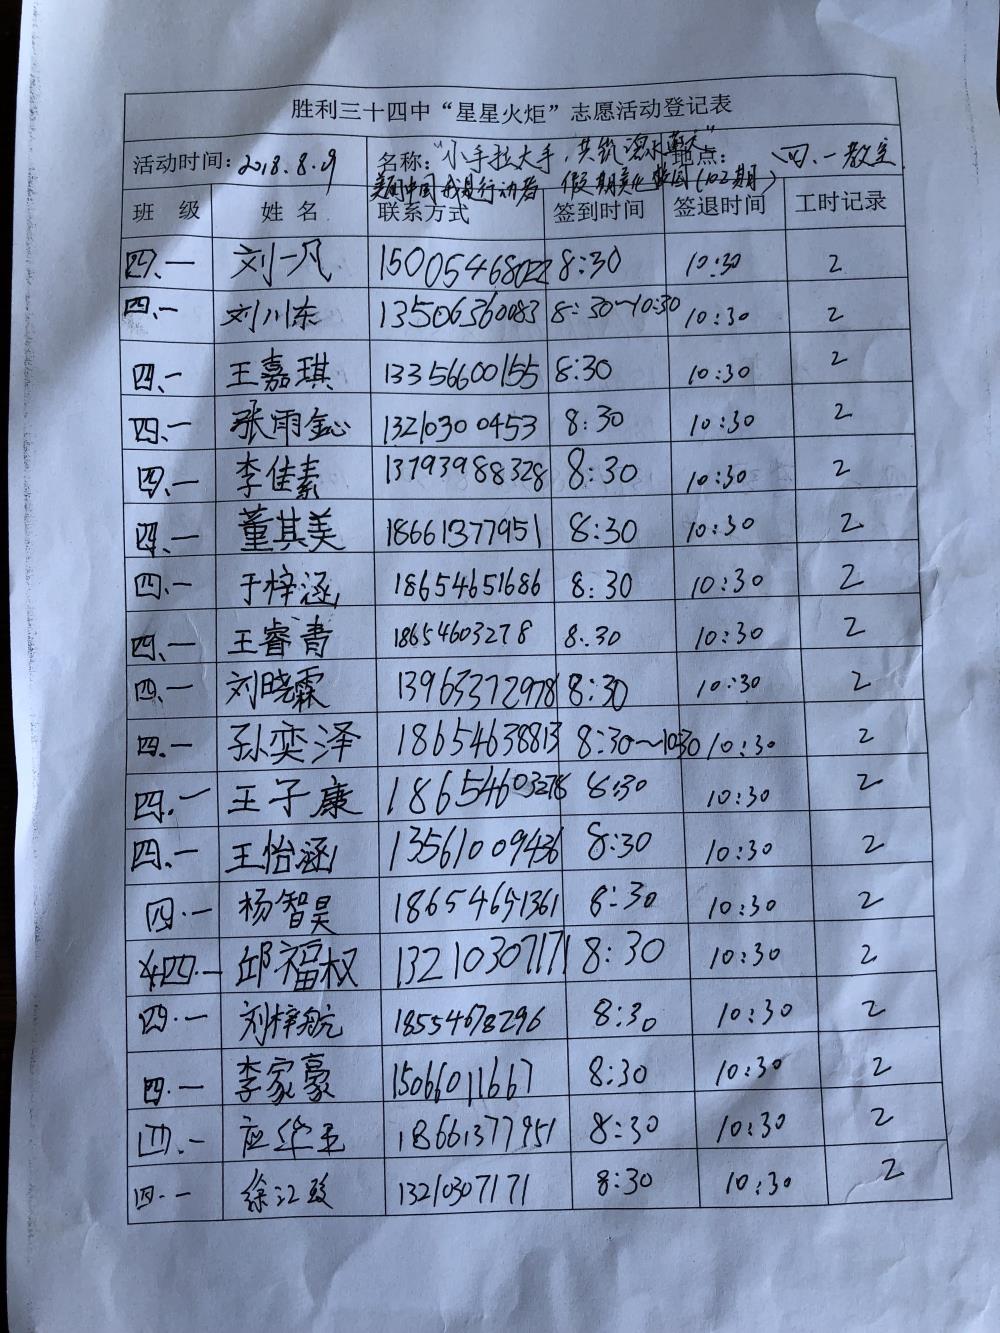 胜利三十四中“星星火炬”志愿活动登记表
活动时间：2018.8.9 名称：“小手拉大手，共筑 地点：四.一教室
美丽中国 我是行动者 假期美化校园(102期)
班 级 姓 名 联系方式 签到时间 签退时间 工时记录
四、一 刘一凡 15005468022 8:30 10:30 2
四、一 刘川东 13506360083 8:30～10:30 10:30 2
四、一 王嘉琪 13356600155 8:30 10:30 2
四、一 张雨鈊 13210300453 8:30 10:30 2
四、一 李佳素 13793988328 8:30 10:30 2
四、一 董其美 18661377951 8:30 10:30 2
四、一 于梓涵 18654651686 8:30 10:30 2
四、一 王睿青 18654603278 8:30 10:30 2
四、一 刘晓霖 13963372978 8:30 10:30 2
四、一 孙奕泽 18654638813 8:30～10:30 10:30 2
四.一 王子康 18654603278 8:30 10:30 2
四、一 王怡涵 13561009436 8:30 10:30 2
四.一 杨智昊 18654651361 8:30 10:30 2
四.一 邱福权 13210307171 8:30 10:30 2
四.一 刘梓航 18554678296 8:30 10:30 2
四.一 李家豪 15066011667 8:30 10:30 2
四、一 18661377951 8:30 10:30 2
四.一 徐江 13210307171 8:30 10:30 2